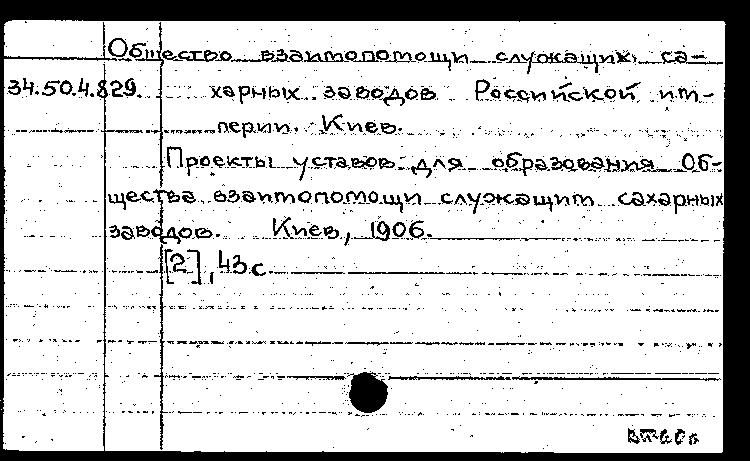 Общество взаимопомощи служащих са-
34.50.4.829. харных заводов Российской им-
перии. Киев.
Проекты уставов для образования Об-
щества взаимопомощи служащим сахарных
заводов. Киев, 1906.
[2], 43 с.